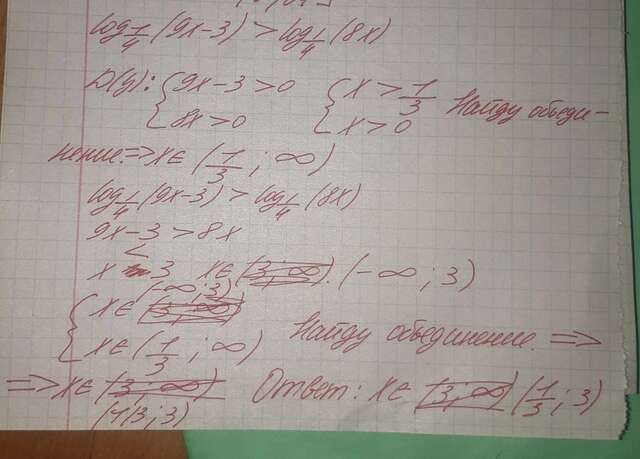 log_1/4 (9x-3) > log_1/4 (8x)
D(y): { 9x-3>0 { x > 1/3 Найду объеди-
8x>0 x>0
нение => x∈ (1/3 ; ∞)
log_1/4 (9x-3) > log_1/4 (8x)
9x-3 > 8x
<
x 3 x∈ (3; ∞). (-∞; 3)
(-∞; 3)
{ x∈ (3; ∞)
x∈ (1/3 ; ∞) Найду объединение. =>
=> x∈ (3; ∞) Ответ: x∈ (3; ∞) (1/3 ; 3)
(1/3; 3)